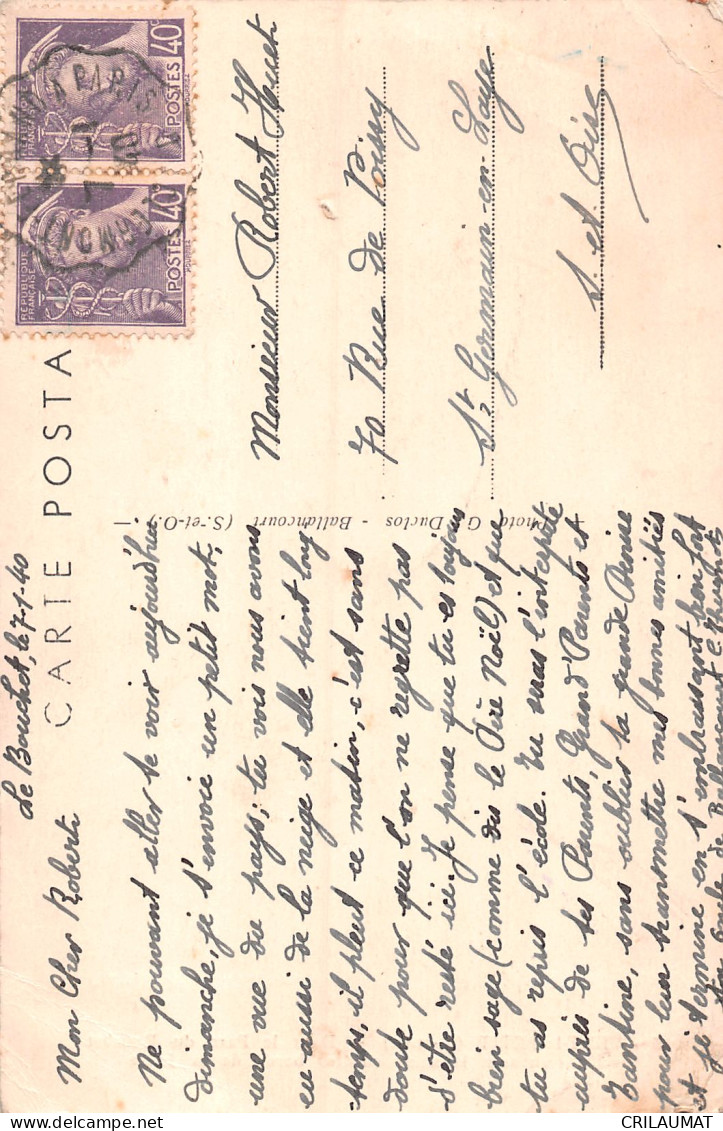 CARTE POSTA
Le Bouchet, le 7-1-40
Mon Cher Robert.
Ne pouvant aller te voir aujourd'hui
dimanche, je t'envoie un petit mot,
une vue du pays; tu vois nous avons
eu aussi de la neige et elle tient long
temps, il pleut ce matin, c'est sans
doute pour que l'on ne regrette pas
d'être resté ici. Je pense que tu es toujours
bien sage (comme dis le Père Noël) et que
tu as repris l'école. Tu seras l'interprète
auprès de tes Parents, Grand'Parents et
Tantine, sans oublier la grande
pour leur transmettre mes bonnes amitiés
et je termine en t'embrassant bien fort
Photo G. Duclos - Ballancourt (S.-et-O.). —
Monsieur Robert Huet
70 Rue de Poissy
St Germain-en-Laye
S. et Oise
RÉPUBLIQUE
FRANÇAISE
40c
POSTES
RÉPUBLIQUE
FRANÇAISE
40c
POSTES
A PARIS
CRILAUMAT